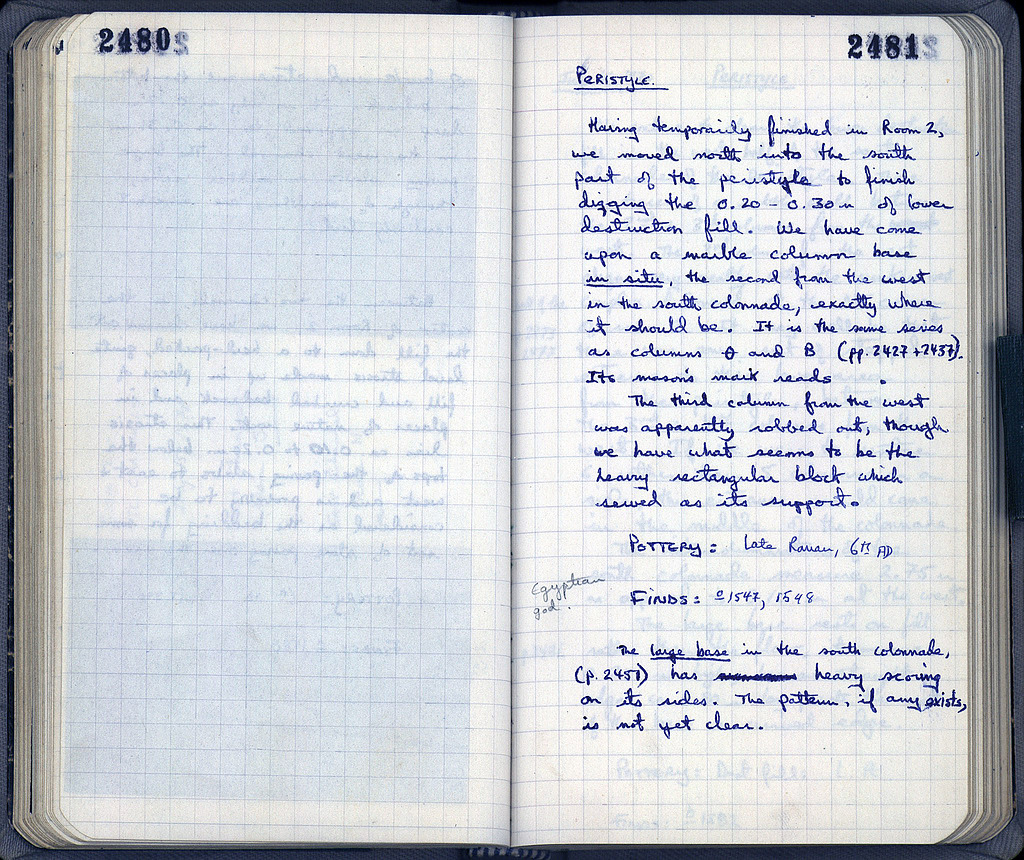 2480
2481
PERISTYLE.
Having temporarily finished in Room 2,
we moved north into the south
part of the peristyle to finish
digging the 0.20 - 0.30 m of lower
destruction fill. We have come
upon a marble column base
in situ, the second from the west
in the south colonnade, exactly where
it should be. It is the same series
as columns θ and B (pp. 2427 + 2437).
Its mason's mark reads .
The third column from the west
was apparently robbed out, though
we have what seems to be the
heavy rectangular block which
served as its support.
POTTERY: Late Roman, 6th AD
Egyptian
god.
FINDS: 1547, 1548
The large base in the south colonnade,
(p. 2451) has heavy scoring
on its sides. The pattern, if any exists,
is not yet clear.